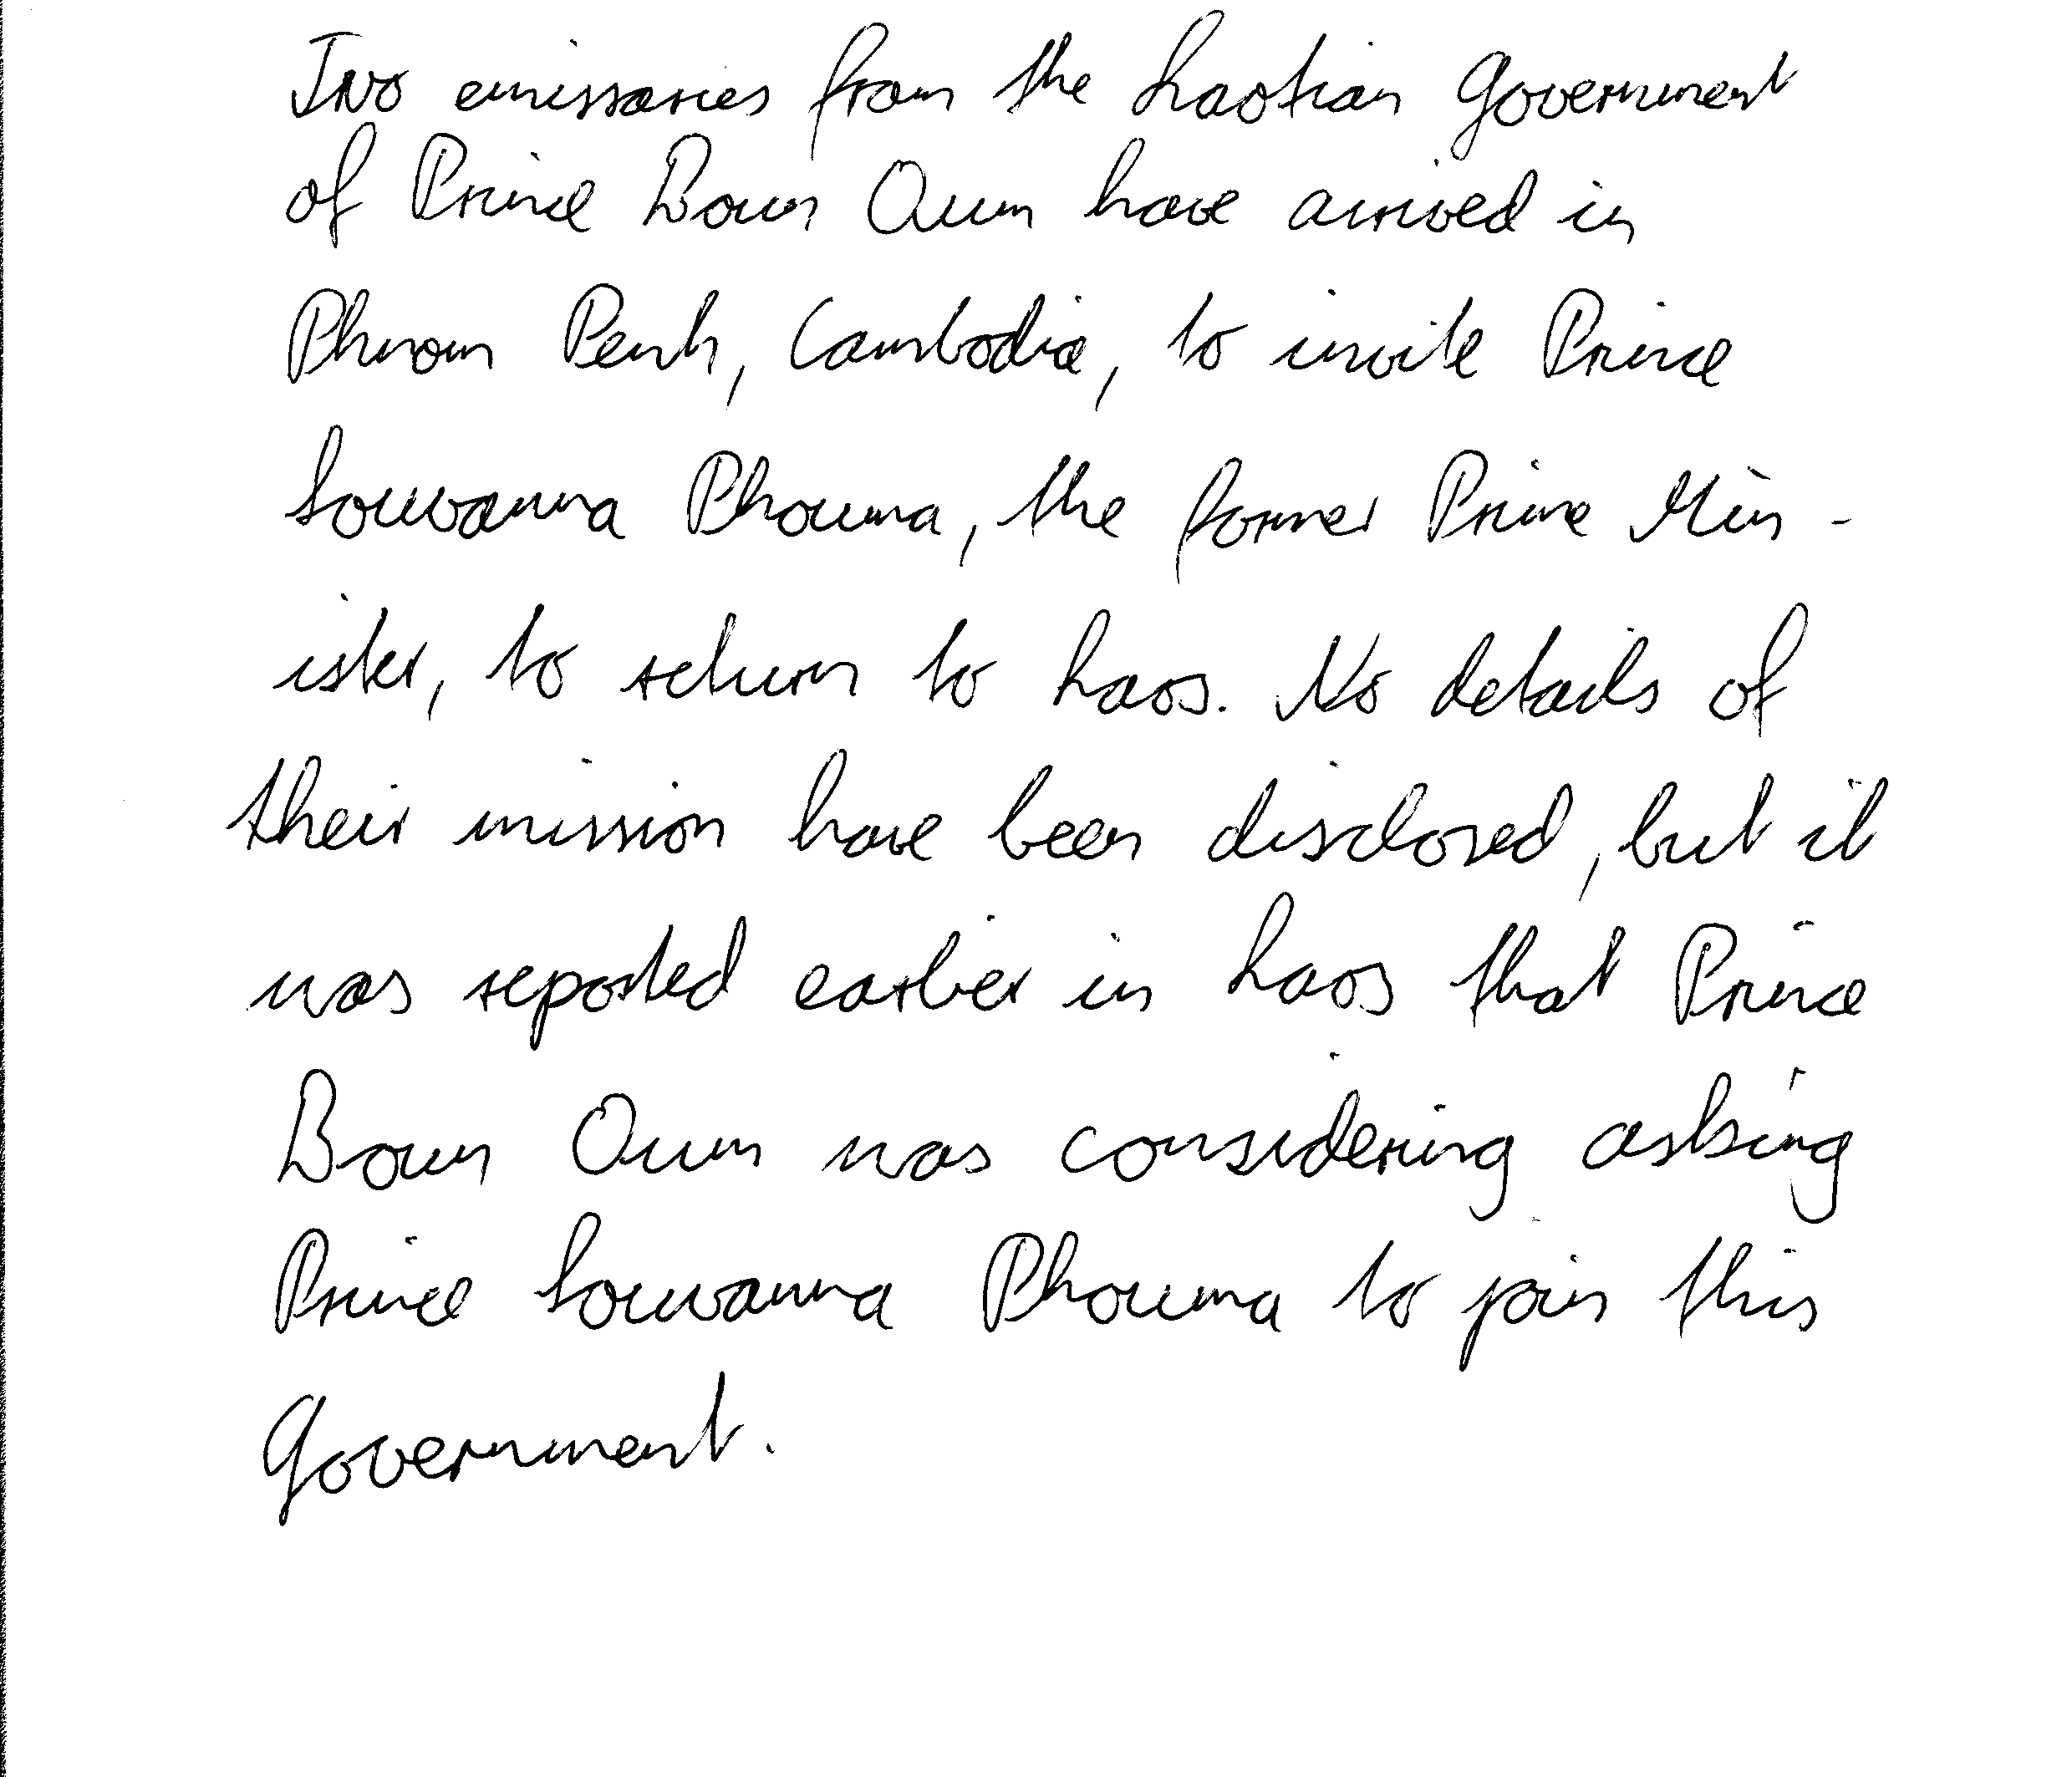 Two emissaries from the Laotian Government
of Prince Boun Oum have arrived in
Phnom Penh, Cambodia, to invite Prince
Souvanna Phouma, the former Prime Min-
ister, to return to Laos. No details of
their mission have been disclosed, but it
was reported earlier in Laos that Prince
Boun Oum was considering asking
Prince Souvanna Phouma to join this
Government.